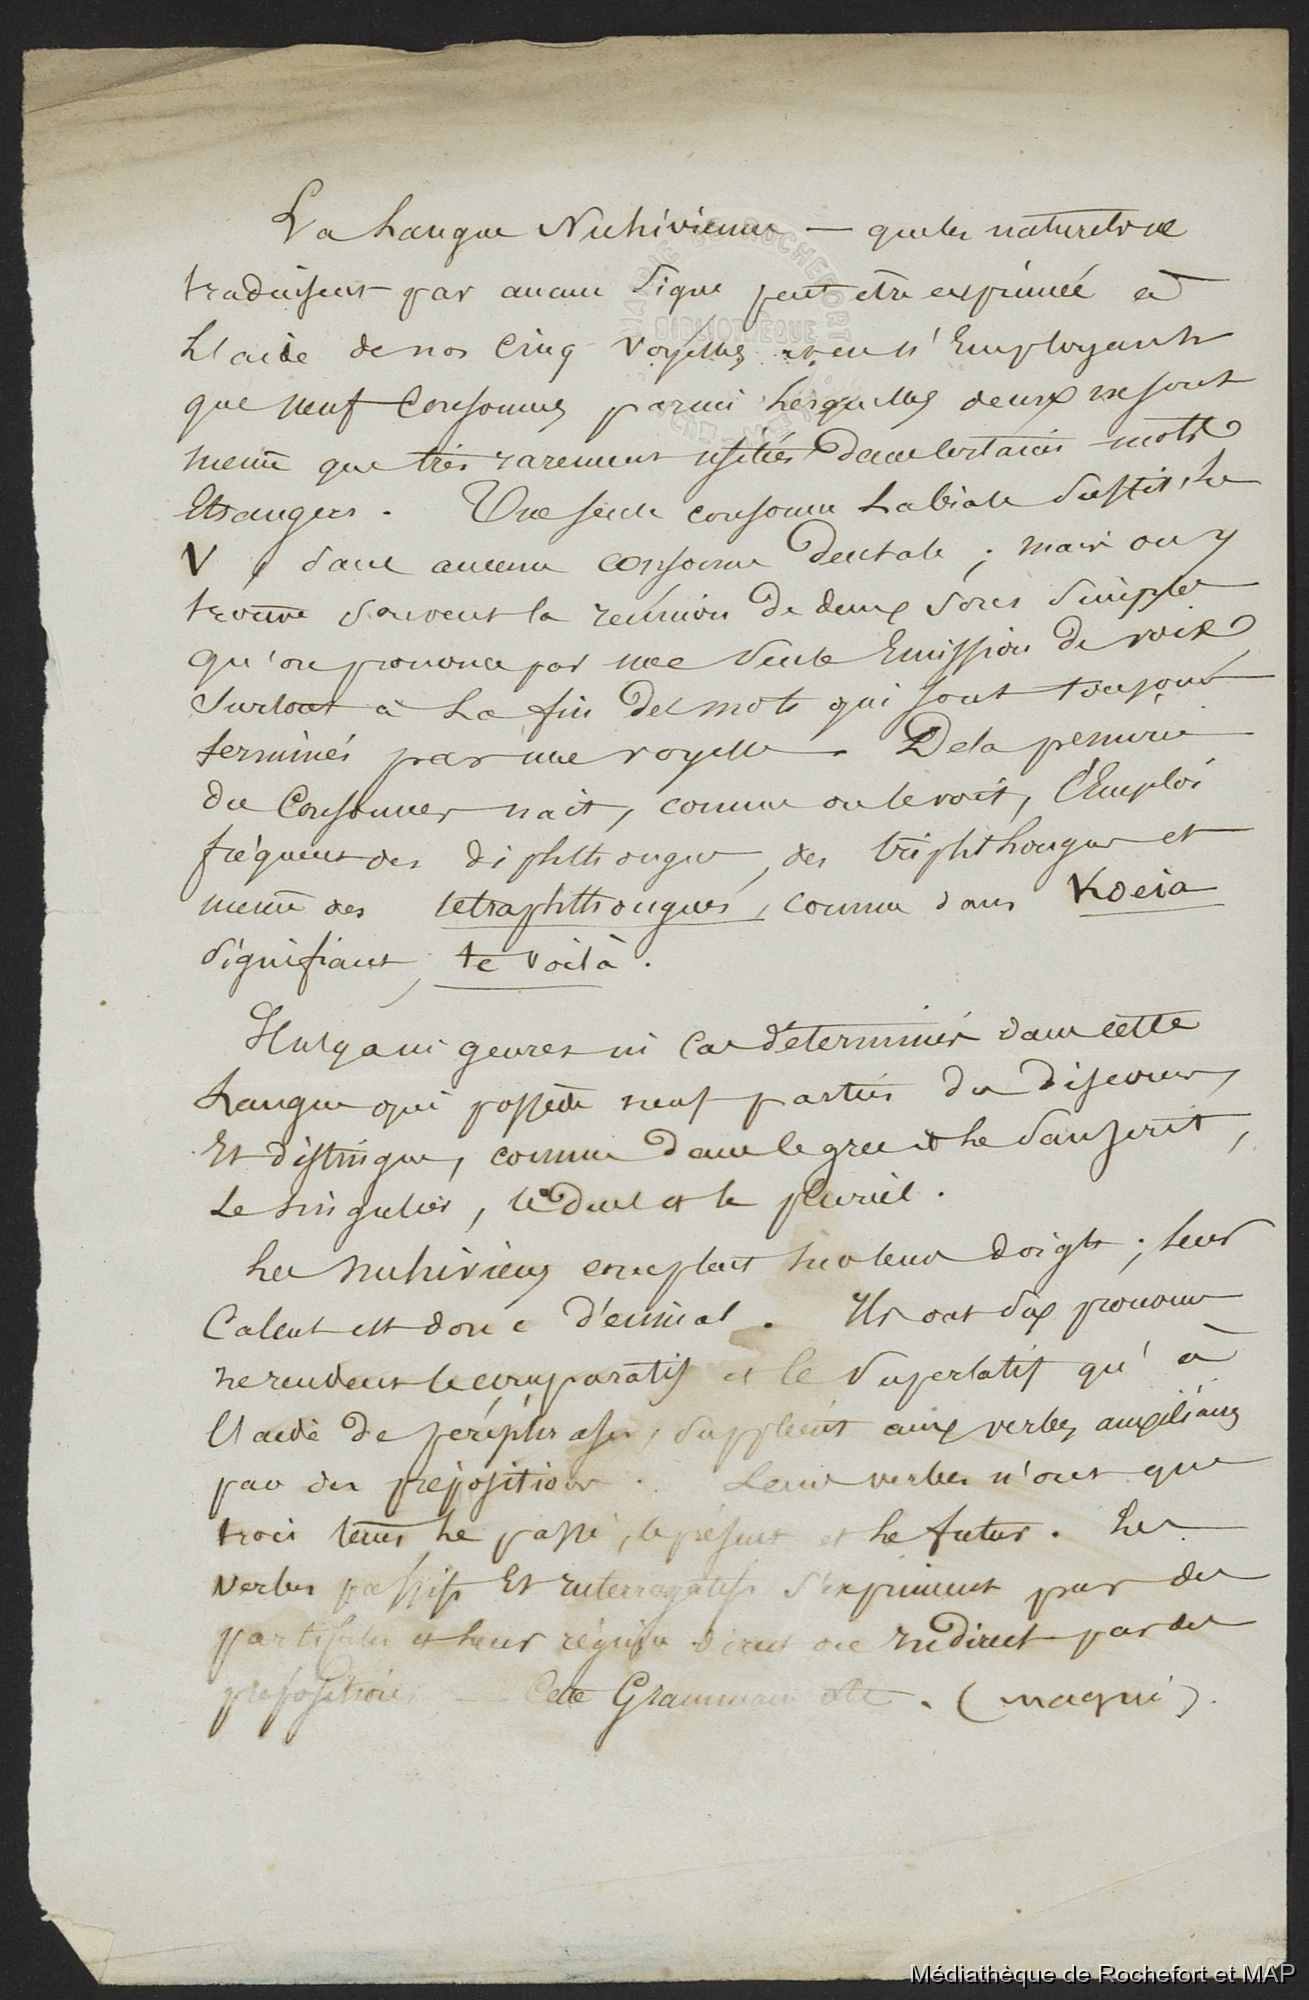 La Langue Nuhivienne — que les naturels ne
traduisent par aucun signe peut être exprimée à
L'aide de nos cinq voyelles et en n'Employant
que neuf Consonnes parmi Lesquelles deux ne sont
meme que très rarement usitées dans certains mots
Etrangers. Une seule consonne Labiale suffit, Le
V, sans aucune consonne Dentale; mais on y
trouve souvent la reunion de deux sons simples
qu'on prononce par une seule Emission de voix
surtout à La fin des mots qui sont toujours
terminés par une voyelle. De la penurie
de Consonnes nait, comme on le voit, l'Emploi
fréquent des diphthongues, des triphthongues et
meme des tetraphthongues, comme dans Koeia
signifiant, te voilà.
Il n'y a ni genres ni cas déterminés dans cette
Langue qui possède neuf parties du discours,
Et distingue, comme dans le grec et le sanscrit,
Le singulier, le duel et le pluriel.
Les nuhiviens comptent sur leurs doigts; leur
Calcul est donc décimal. Ils ont six pronoms
ne rendent le comparatif et le superlatif qu'à
L'aide de périphrases, suppléent aux verbes auxiliaires
par des prépositions. Leurs verbes n'ont que
trois tems Le passé, le présent et Le futur. Les
Verbes passifs Et interrogatifs s'expriment par des
particules et leur régime direct ou indirect par des
prépositions — Cette Grammaire etc. (maqui).
BIBLIOTHÈQUE
Médiathèque de Rochefort et MAP